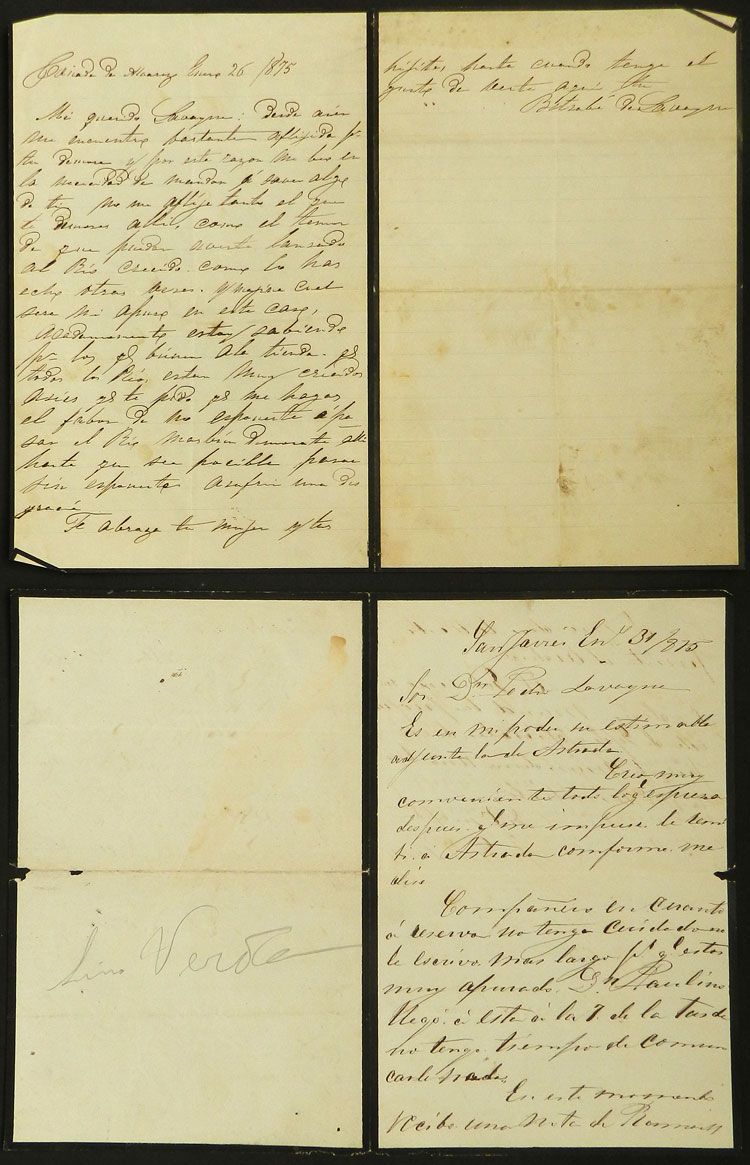 de Alvarez Enero 26 1875
Mi querido Lavayne: desde ayer
me encuentro bastante aflijida pr
tu demora y por esta razon me beo en
la necesidad de mandar á saver algo
de ti. no me aflije tanto el que
te demores alli, como el temor
de que puedas averte lansado
al Rio crecido como lo has
echo otras veses. Ymajina cual
sera mi apuro en este caso,
Acadamomento estoy sabiendo
pr los qe bienen a la tienda. qe
todos los Rios estan muy crecidos
asies qe te pido qe me hagas
el fabor de no esponerte apa
sar el Rio masbien demorate alli
hasta que sea pocible pasar
sin esponerte asufrir una des
gracia
Te abraza tu mujer y tus
hijitos, hasta cuando tenga el
gusto de verte aqui Tu
de Lavayne
Lino Verde
San Javier En.o 31/875
Sor. Dn Pedro Lavayne
Es en mi poder su estimable
adjunta la de Astrada
Creo muy
comveniente todo lo qe espresa
despues qe me impuse le remi
ti á Astrada comforme me
dise
Compañero en cuanto
á reserva no tenga cuidado no
le escrivo mas largo pr qe estoy
muy apurado. Dn Paulino
llegó á esta á la 7 de la tarde
no tengo tiempo de comun
carle nada
En este momento
recibo una nota de